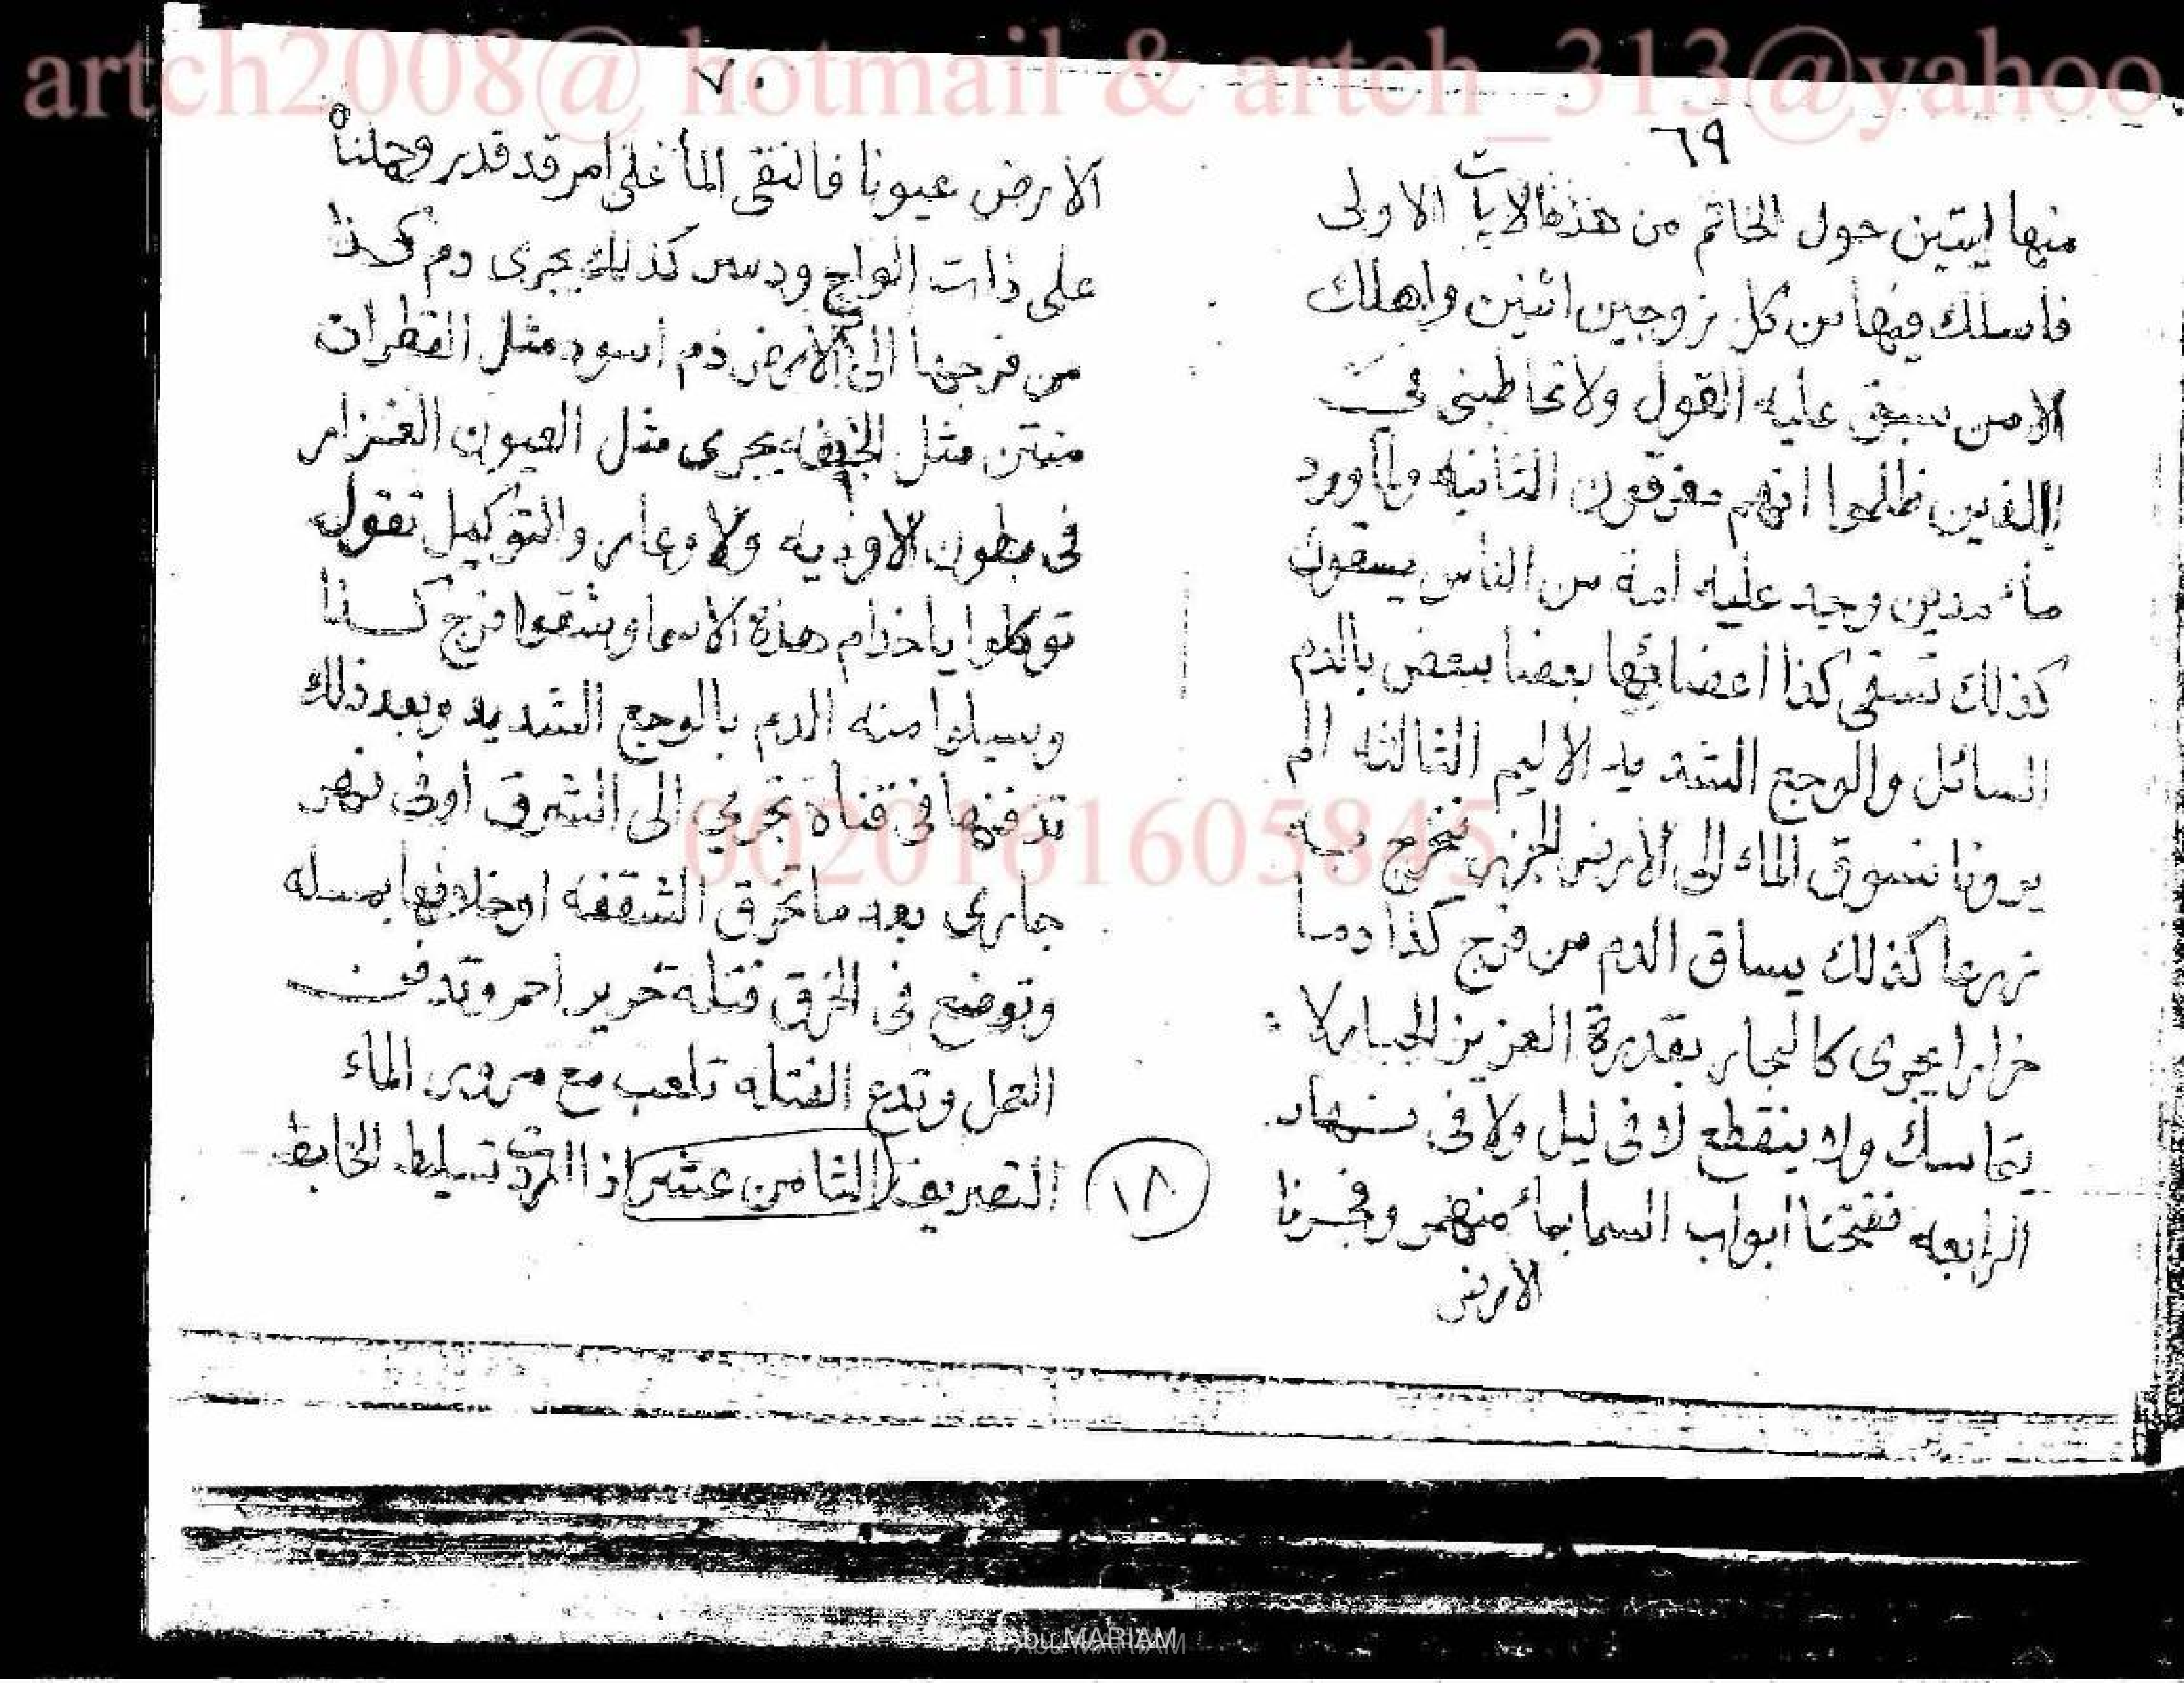 artch2008@ hotmail & artch_313@yahoo
٦٩
منها ايتين حول الخاتم من هذه الايات الاولى
فاسلك فيها من كل زوجين اثنين واهلك
الا من سبق عليه القول ولا تخاطبنى في
الذين ظلموا انهم مغرقون الثانيه ولما ورد
ماء مدين وجد عليه امة من الناس يسقون
كذلك تسقى كذا اعضائها بعضا ببعض بالدم
السائل والوجع الشديد الاليم الثالثه الم
يرونا نسوق الماء الى الارض الجزر فنخرج به
زرعا كذلك يساق الدم من فرج كذا دما
خرارا يجرى كالبحار بقدرة العزيز الجبار لا
يتماسك ولا ينقطع لا فى ليل ولا فى نهار
الرابعه ففتحنا ابواب السما بماء منهمر وفجرنا
الارض
٧٠
الارض عيونا فالتقى الماء على امر قد قدر وحملناه
على ذات الواح ودسر كذلك يجرى دم كذا
من فرجها الى الارض دم اسود مثل القطران
منتن مثل الجيفه يجرى مثل العيون الغزار
فى بطون الاوديه ولاوعار والتوكيل تقول
توكلوا يا خدام هذه الاسما وشقوا فرج كذا
وسيلوا منه الدم بالوجع الشديد وبعد ذلك
تدفنها فى قناة تجري الى الشرق أوفى نهر
جارى بعد ما تخرق الشقفه اوخلافها بمسله
وتوضع فى الخرق فتلة حرير احمر وتدفن
العمل وتدع الفتله تلعب مع مرور الماء
١٨ التصريف الثامن عشر اذا اردت تسليط الخابط
0020161605845
Abu MARIAM